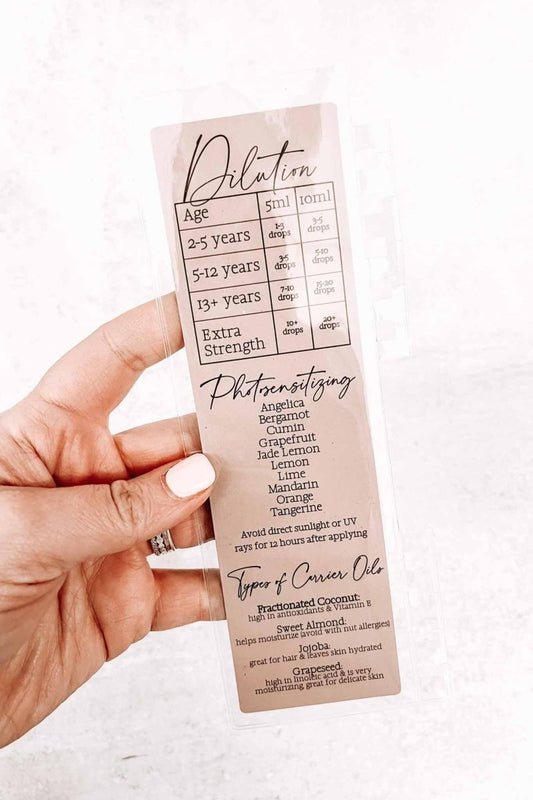 Dilution
Age 5ml 10ml
2-5 years 1-3 drops 3-5 drops
5-12 years 3-5 drops 5-10 drops
13+ years 7-10 drops 15-20 drops
Extra Strength 10+ drops 20+ drops
Photosensitizing
Angelica
Bergamot
Cumin
Grapefruit
Jade Lemon
Lemon
Lime
Mandarin
Orange
Tangerine
Avoid direct sunlight or UV
rays for 12 hours after applying
Types of Carrier Oils
Fractionated Coconut:
high in antioxidants & Vitamin E
Sweet Almond:
helps moisturize (avoid with nut allergies)
Jojoba:
great for hair & leaves skin hydrated
Grapeseed:
high in linoleic acid & is very
moisturizing, great for delicate skin